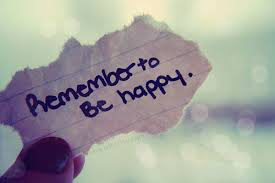 Remember to
Be happy.